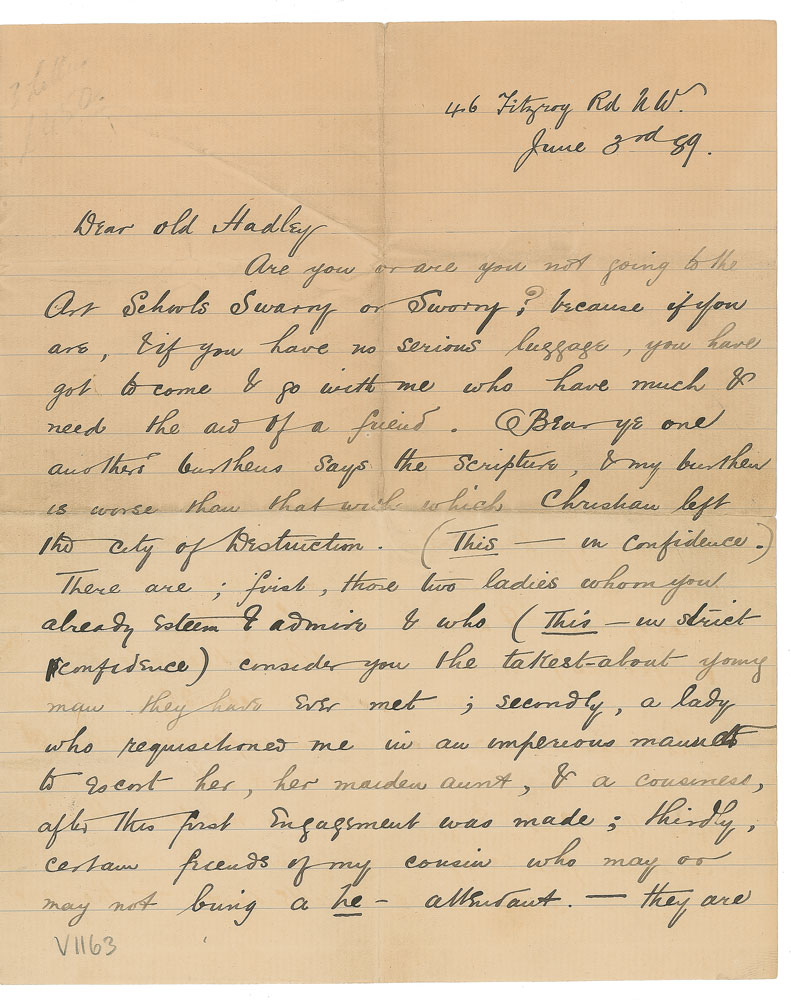 46 Fitzroy Rd N W.
June 3rd 89.
Dear old Hadley
Are you or are you not going to the
Art Schools Swarry or Sworry? because if you
are, & if you have no serious luggage, you have
got to come & go with me who have much &
need the aid of a friend. Bear ye one
anothers burthens says the scripture, & my burthen
is worse than that with which Christian left
the city of Destruction. (This — in confidence.)
There are; first, those two ladies whom you
already esteem & admire & who (This — in strict
confidence) consider you the takest-about young
man they have ever met; secondly, a lady
who requisitioned me in an imperious manner
to escort her, her maiden aunt, & a cousiness,
after this first Engagement was made; thirdly,
certain friends of my cousin who may or
may not bring a he- attendant. — they are
V1163